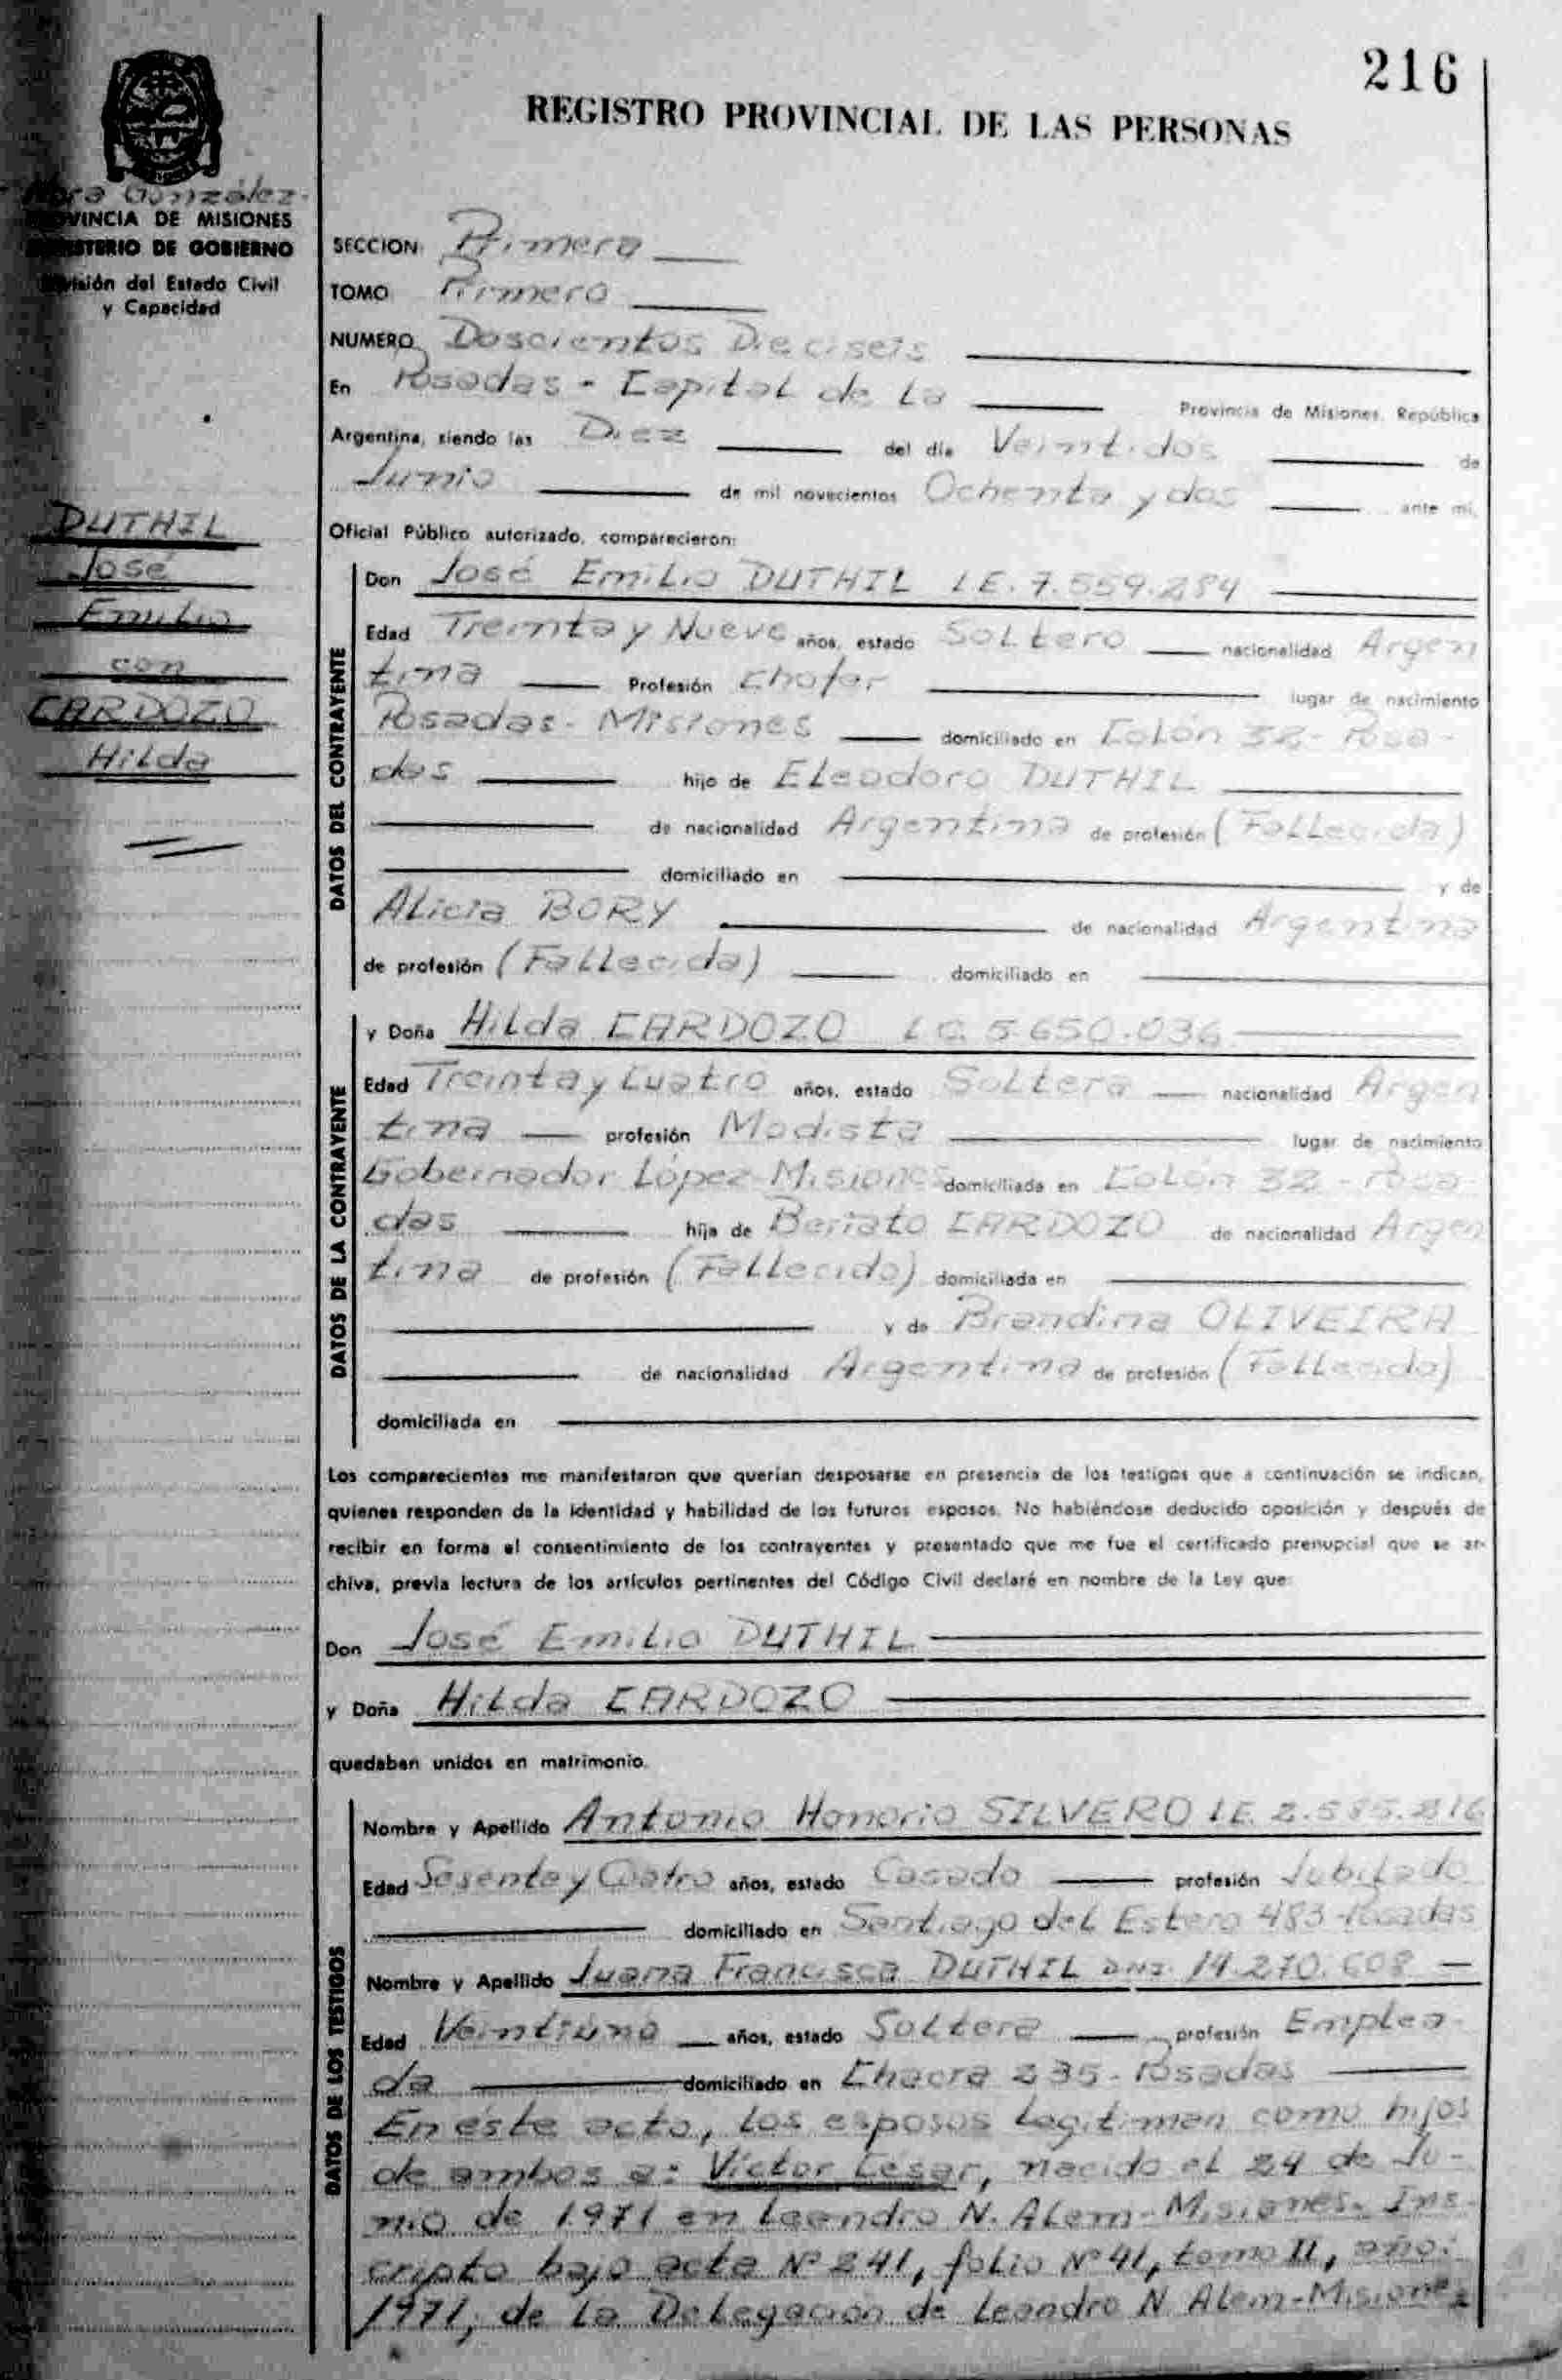 216
REGISTRO PROVINCIAL DE LAS PERSONAS
González
PROVINCIA DE MISIONES
MINISTERIO DE GOBIERNO
División del Estado Civil
y Capacidad
DUTHIL
José
Emilio
con
CARDOZO
Hilda
SECCION Primera
TOMO Primero
NUMERO Doscientos Dieciseis
En Posadas - Capital de La Provincia de Misiones, República
Argentina, siendo las Diez del día Veintidos de
Junio de mil novecientos Ochenta y dos ante mí,
Oficial Público autorizado, comparecieron:
DATOS DEL CONTRAYENTE
Don José Emilio DUTHIL L.E. 7.559.284
Edad Treinta y Nueve años, estado Soltero nacionalidad Argen
tina Profesión Chofer lugar de nacimiento
Posadas - Misiones domiciliado en Colón 32 - Posa-
das hijo de Eleodoro DUTHIL
de nacionalidad Argentina de profesión (Fallecido)
domiciliado en y de
Alicia BORY de nacionalidad Argentina
de profesión (Fallecida) domiciliado en
DATOS DE LA CONTRAYENTE
y Doña Hilda CARDOZO L.C. 5.650.036
Edad Treinta y Cuatro años, estado Soltera nacionalidad Argen
tina profesión Modista lugar de nacimiento
Gobernador López - Misiones domiciliada en Colón 32 - Posa-
das hija de CARDOZO de nacionalidad Argen
tina de profesión (Fallecido) domiciliada en
y de Brandina OLIVEIRA
de nacionalidad Argentina de profesión (Fallecida)
domiciliada en
Los comparecientes me manifestaron que querían desposarse en presencia de los testigos que a continuación se indican,
quienes responden de la identidad y habilidad de los futuros esposos. No habiéndose deducido oposición y después de
recibir en forma el consentimiento de los contrayentes y presentado que me fue el certificado prenupcial que se ar-
chiva, previa lectura de los artículos pertinentes del Código Civil declaré en nombre de la Ley que:
Don José Emilio DUTHIL
y Doña Hilda CARDOZO
quedaban unidos en matrimonio.
DATOS DE LOS TESTIGOS
Nombre y Apellido Antonio Honorio SILVERO L.E. 2.585.216
Edad Sesenta y Cuatro años, estado Casado profesión Jubilado
domiciliado en Santiago del Estero 483 - Posadas
Nombre y Apellido Juana Francisca DUTHIL DNI. 14.270.608
Edad Veintiuno años, estado Soltera profesión Emplea-
da domiciliado en Chacra 235 - Posadas
En éste acto, los esposos legitiman como hijos
de ambos a: Víctor Cesar, nacido el 24 de Ju-
nio de 1971 en Leandro N. Alem - Misiones. Ins-
cripto bajo acta Nº 241, folio Nº 41, tomo II, año:
1971, de la Delegación de Leandro N Alem - Misiones